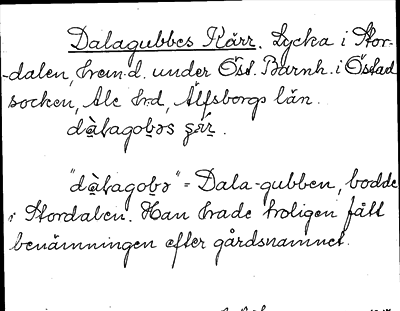 Dalagubbes Kärr. Lycka i Stor-
-dalen, hem.d. under Öst. Barnh. i Östad
socken, Ale h:d, Älfsborgs län.
"dàlagobə" = Dala-gubben, bodde
i Stordalen. Han hade troligen fått
benämningen efter gårdsnamnet.